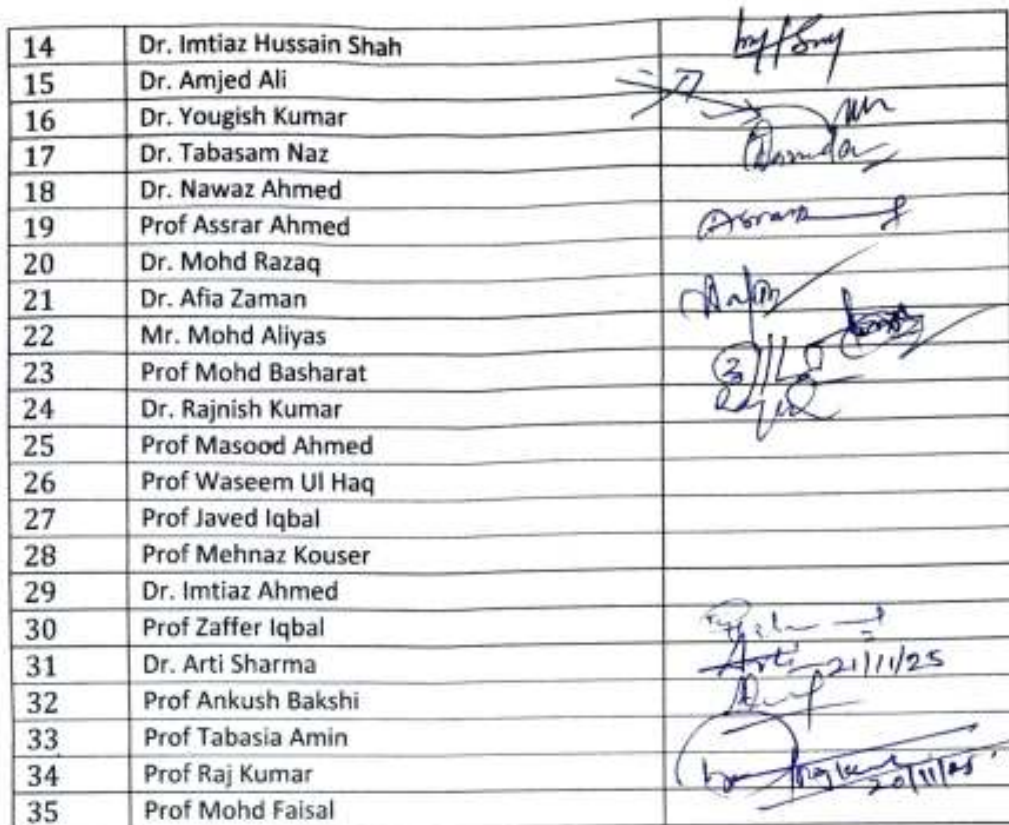 14 Dr. Imtiaz Hussain Shah
15 Dr. Amjed Ali
16 Dr. Yougish Kumar
17 Dr. Tabasam Naz
18 Dr. Nawaz Ahmed
19 Prof Assrar Ahmed
20 Dr. Mohd Razaq
21 Dr. Afia Zaman
22 Mr. Mohd Aliyas
23 Prof Mohd Basharat
24 Dr. Rajnish Kumar
25 Prof Masood Ahmed
26 Prof Waseem Ul Haq
27 Prof Javed Iqbal
28 Prof Mehnaz Kouser
29 Dr. Imtiaz Ahmed
30 Prof Zaffer Iqbal
31 Dr. Arti Sharma Arti 21/11/25
32 Prof Ankush Bakshi
33 Prof Tabasia Amin
34 Prof Raj Kumar
35 Prof Mohd Faisal